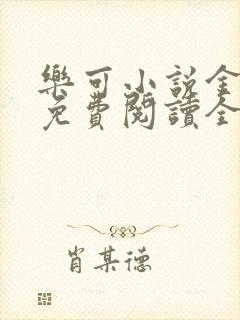 樂可小説全
免費閱讀全
肖某德